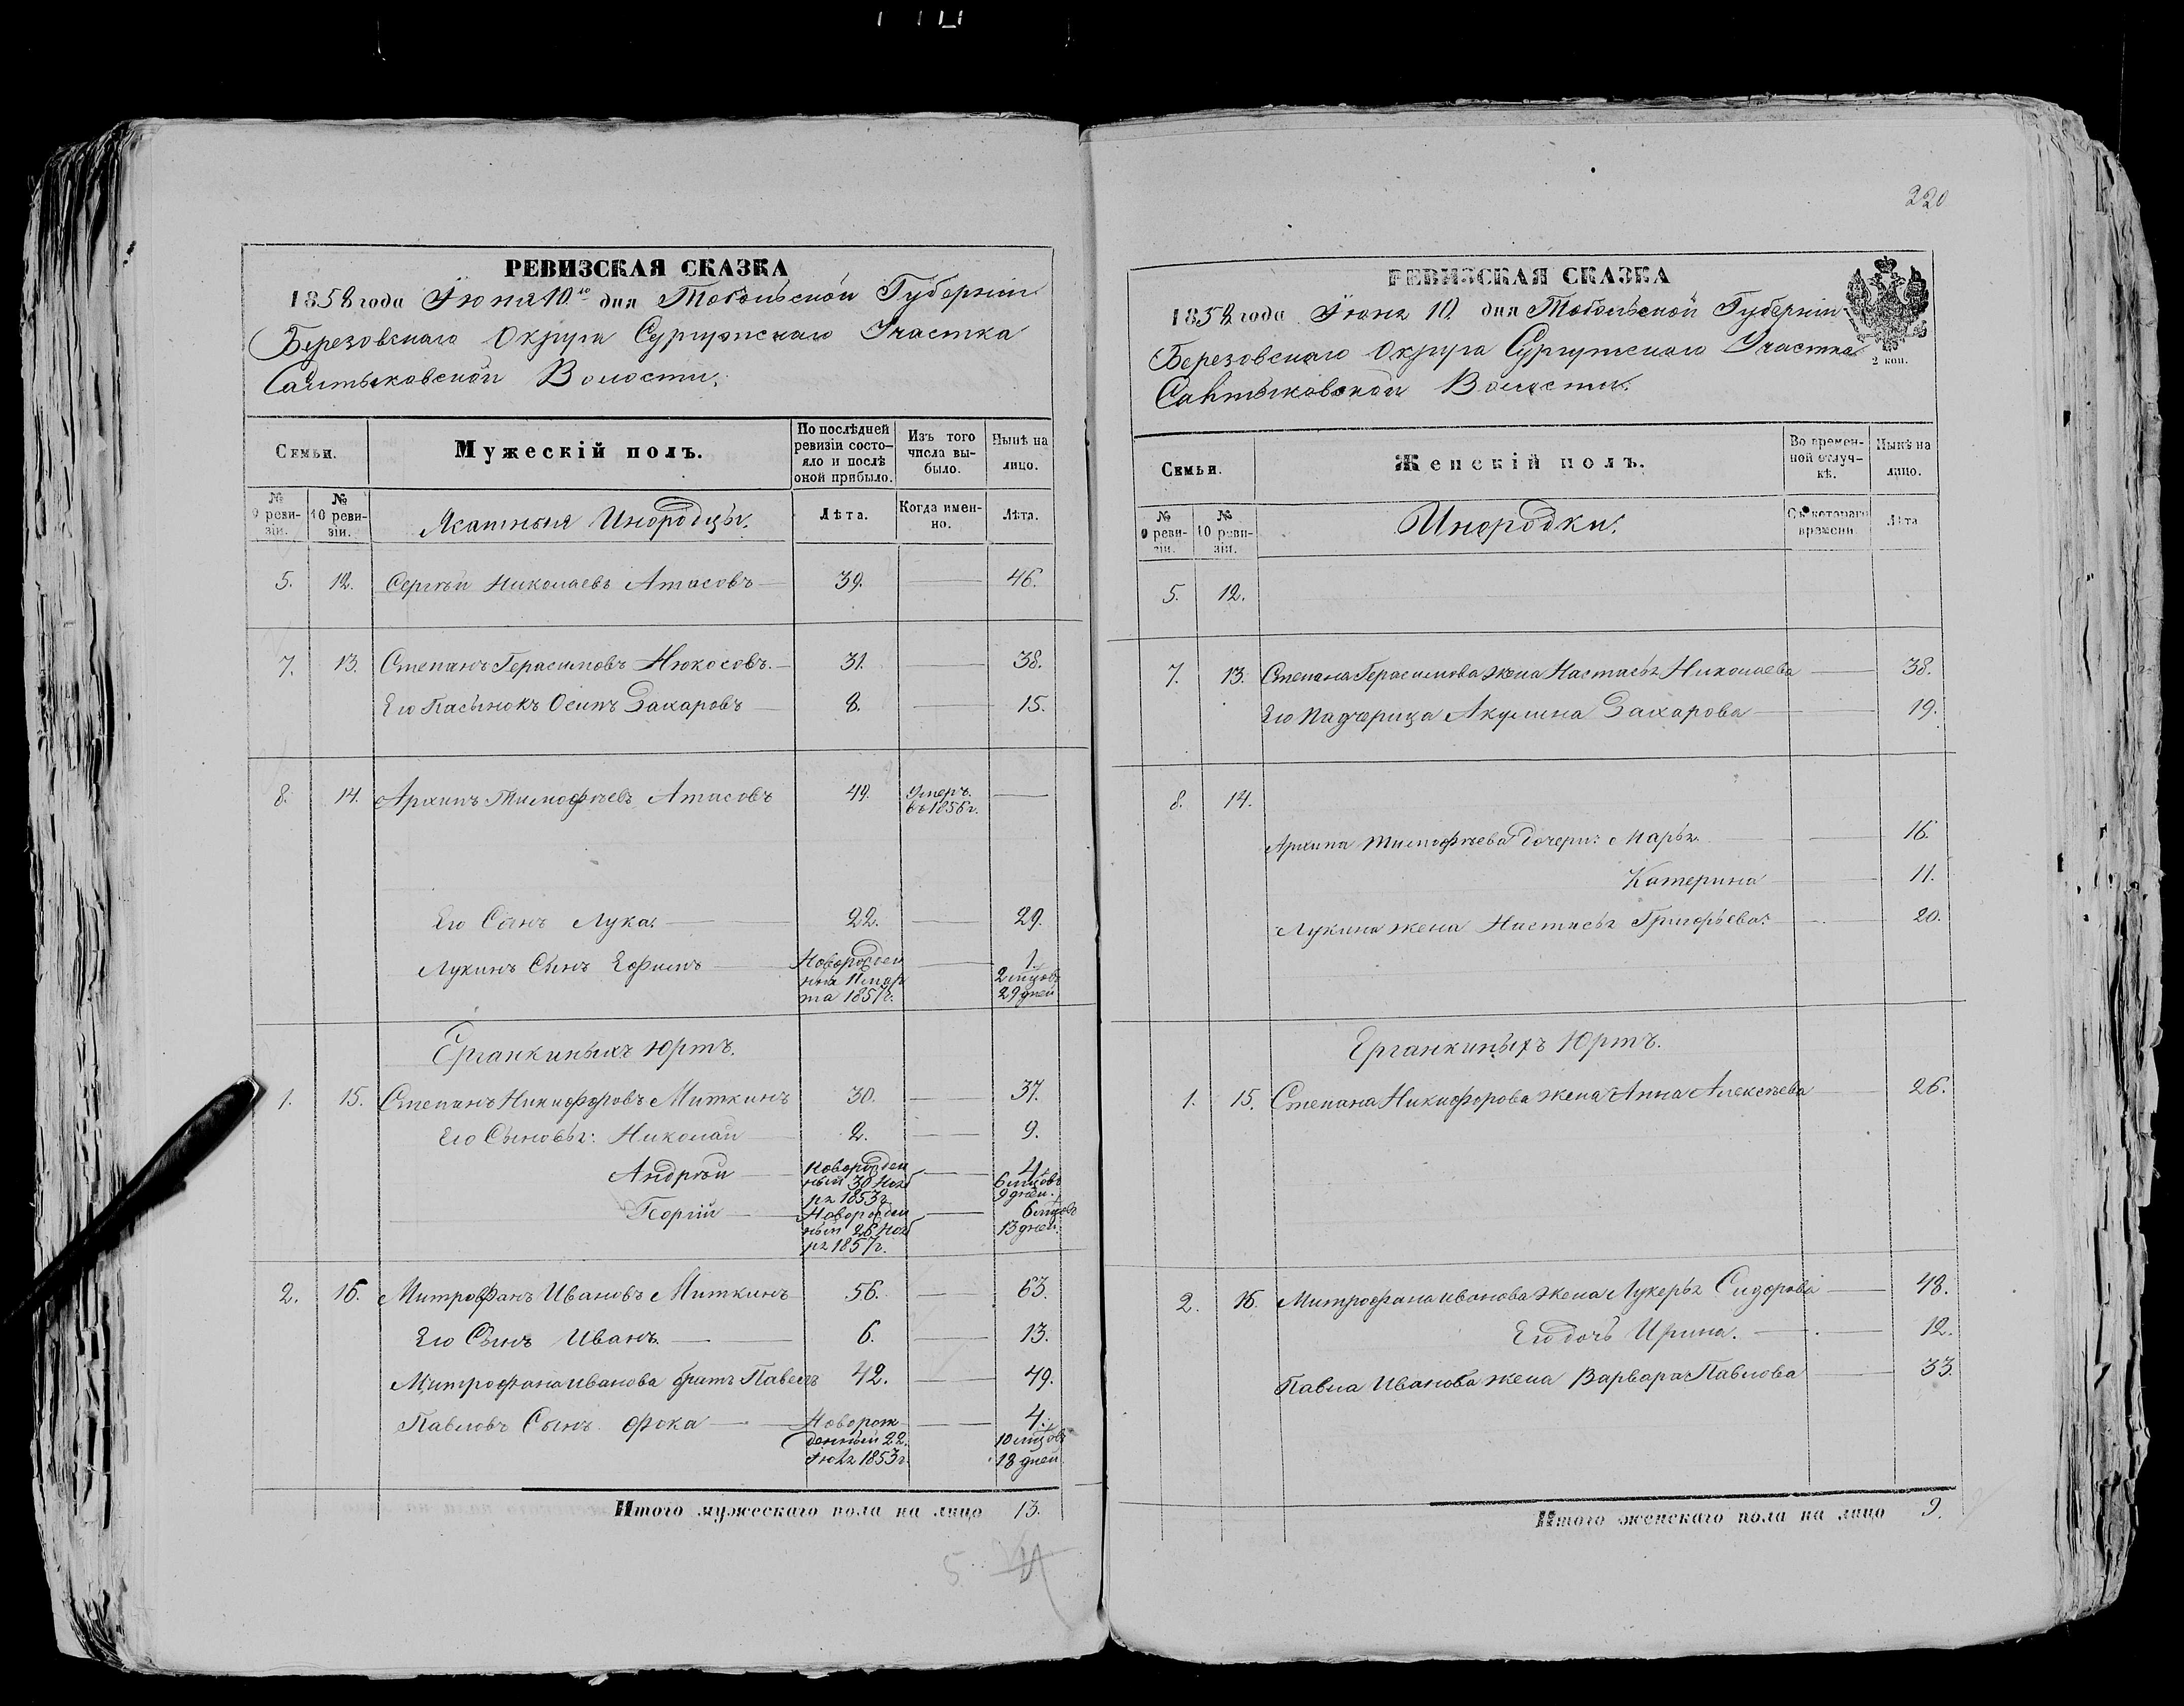 РЕВИЗСКАЯ СКАЗКА
1858 года Іюня 10го дня Тобольской Губерніи
Березовскаго Округа Сургутскаго Участка
Салтыковской Волости.
Семьи.
Мужескій полъ.
По послѣдней ревизіи состо-
яло и послѣ
оной прибыло.
Изъ того
числа вы-
было.
Нынѣ на
лицо.
№
9 реви-
зіи.
№
10 реви-
зіи.
Ясашныя Инородцы.
Лѣта.
Когда имен-
но.
Лѣта.
5. 12. Сергѣй Николаевъ Атасовъ 39. 46.
7. 13. Степанъ Герасимовъ Нюкосовъ. 31. 38.
Его Пасынокъ Осипъ Захаровъ 8. 15.
8. 14. Архипъ Тимофѣевъ Атасовъ 49. Умеръ
въ 1856 г.
Его Сынъ Лука. 22. 29.
Лукинъ Сынъ Ефимъ Новорожден
ный 11 мар
та 1857 г. 1.
2 мцовъ
29 дней
Ерганкиныхъ Юртъ.
1. 15. Степанъ Никифоровъ Миткинъ 30. 37.
Его Сыновья: Николай 2. 9.
Андрѣй Новорожден
ный 30 Нояб
ря 1853 г. 4.
6 мцовъ
9 дней.
Георгій Новорожден
ный 28 Нояб
ря 1857 г. 6 мцовъ
13 дней.
2. 16. Митрофанъ Ивановъ Миткинъ 56. 63.
Его Сынъ Иванъ. 6. 13.
Митрофана Иванова братъ Павелъ 42. 49.
Павловъ Сынъ Фока Новорож
денный 22
Іюля 1853 г. 4.
10 мцовъ
18 дней
Итого мужескаго пола на лицо 13.
5
220
РЕВИЗСКАЯ СКАЗКА
1858 года Іюня 10 дня Тобольской Губерніи
Березовскаго Округа Сургутскаго Участка
Салтыковской Волости.
2 коп.
Семьи.
Женскій полъ.
Во времен-
ной отлуч-
кѣ.
Нынѣ на
лицо.
№
9 реви-
зіи.
№
10 реви-
зіи.
Инородки.
Съ котораго
времени
Лѣта
5. 12.
7. 13. Степана Герасимова жена Настасья Николаева 38.
Его Падчерица Акулина Захарова 19.
8. 14.
Архипа Тимофѣева дочери: Марья. 16.
Катерина 11.
Лукина жена Настасья Григорьева. 20.
Ерганкиныхъ Юртъ.
1. 15. Степана Никифорова жена Анна Алексѣева 26.
2. 16. Митрофана Иванова жена Лукерья Сидорова 48.
Его дочь Ирина. 12.
Павла Иванова жена Варвара Павлова 33.
Итого женскаго пола на лицо 9.